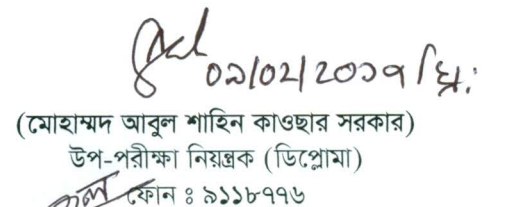 ০৯/০২/২০১৭ খ্রি:
(মোহাম্মদ আবুল শাহিন কাওছার সরকার)
উপ-পরীক্ষা নিয়ন্ত্রক (ডিপ্লোমা)
ফোন ঃ ৯১১৮৭৭৬